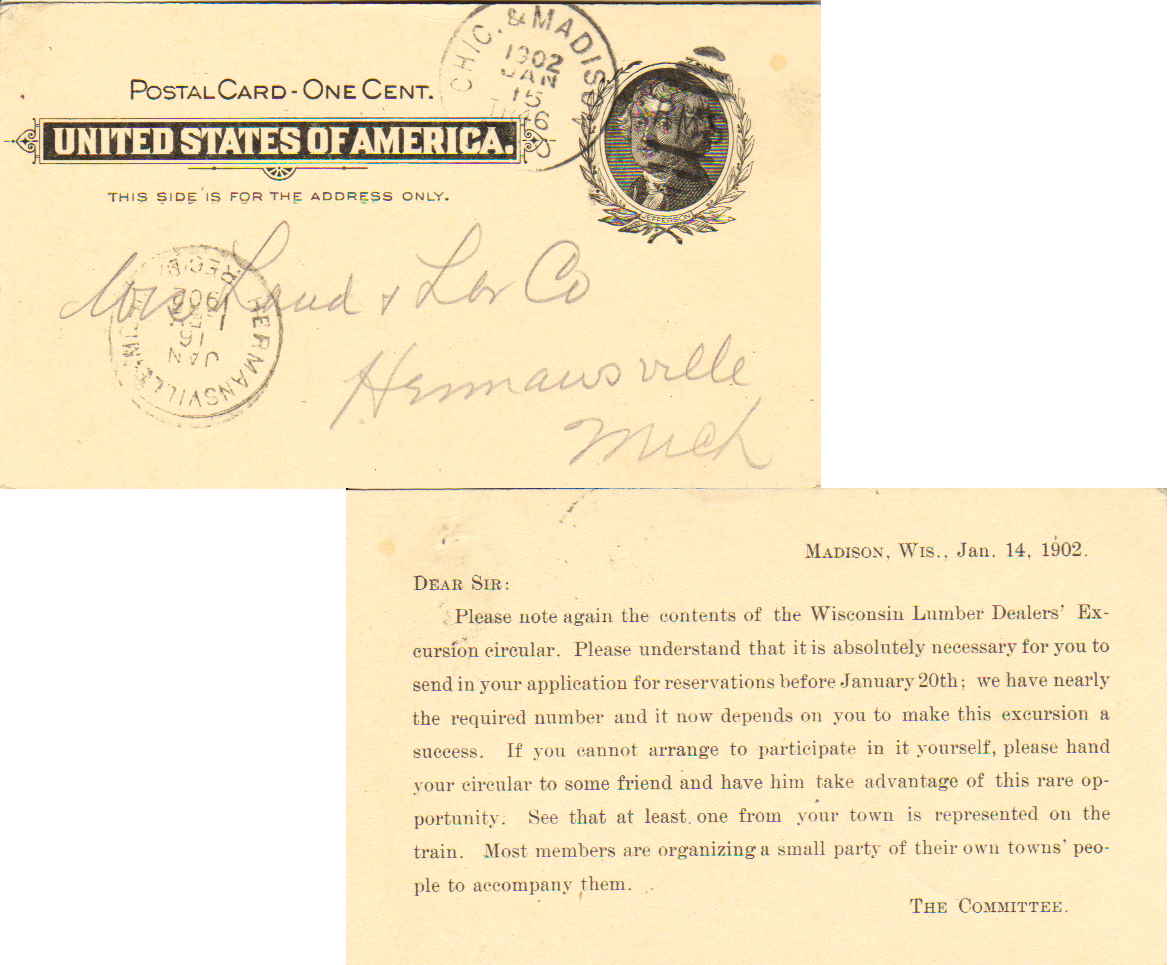 POSTAL CARD - ONE CENT.
UNITED STATES OF AMERICA.
THIS SIDE IS FOR THE ADDRESS ONLY.
JEFFERSON
CHIC. & MADISON
1902
JAN
15
R.P.O.
HERMANSVILLE MICH.
REC'D.
JAN
15
1902
Wis Land & Lbr Co
Hermansville
Mich
MADISON, WIS., Jan. 14, 1902.
DEAR SIR:
Please note again the contents of the Wisconsin Lumber Dealers' Ex-
cursion circular. Please understand that it is absolutely necessary for you to
send in your application for reservations before January 20th; we have nearly
the required number and it now depends on you to make this excursion a
success. If you cannot arrange to participate in it yourself, please hand
your circular to some friend and have him take advantage of this rare op-
portunity. See that at least one from your town is represented on the
train. Most members are organizing a small party of their own towns' peo-
ple to accompany them.
THE COMMITTEE.